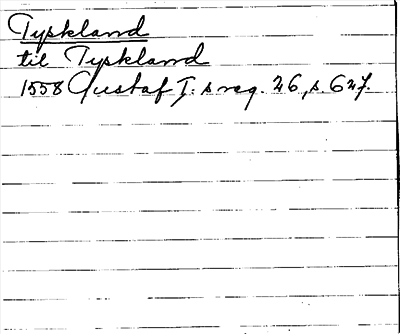 Tyskland
til Tyskland
1558 Gustaf I:s reg. 26, s. 627.